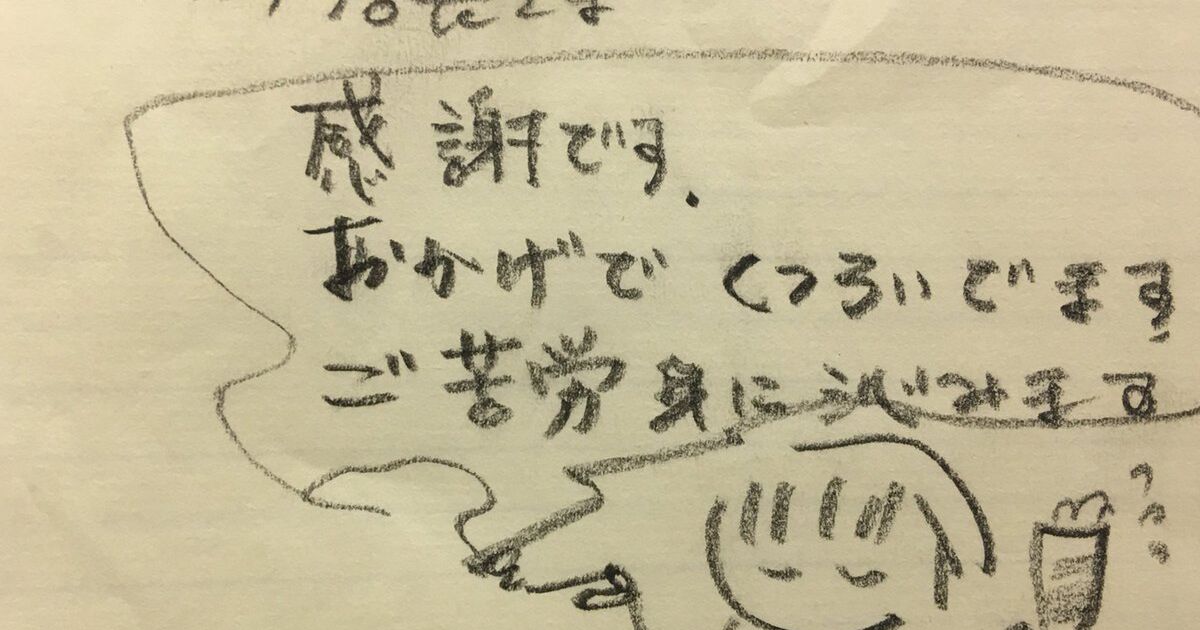 感謝です.
おかげで くつろいでます
ご苦労身にしみます